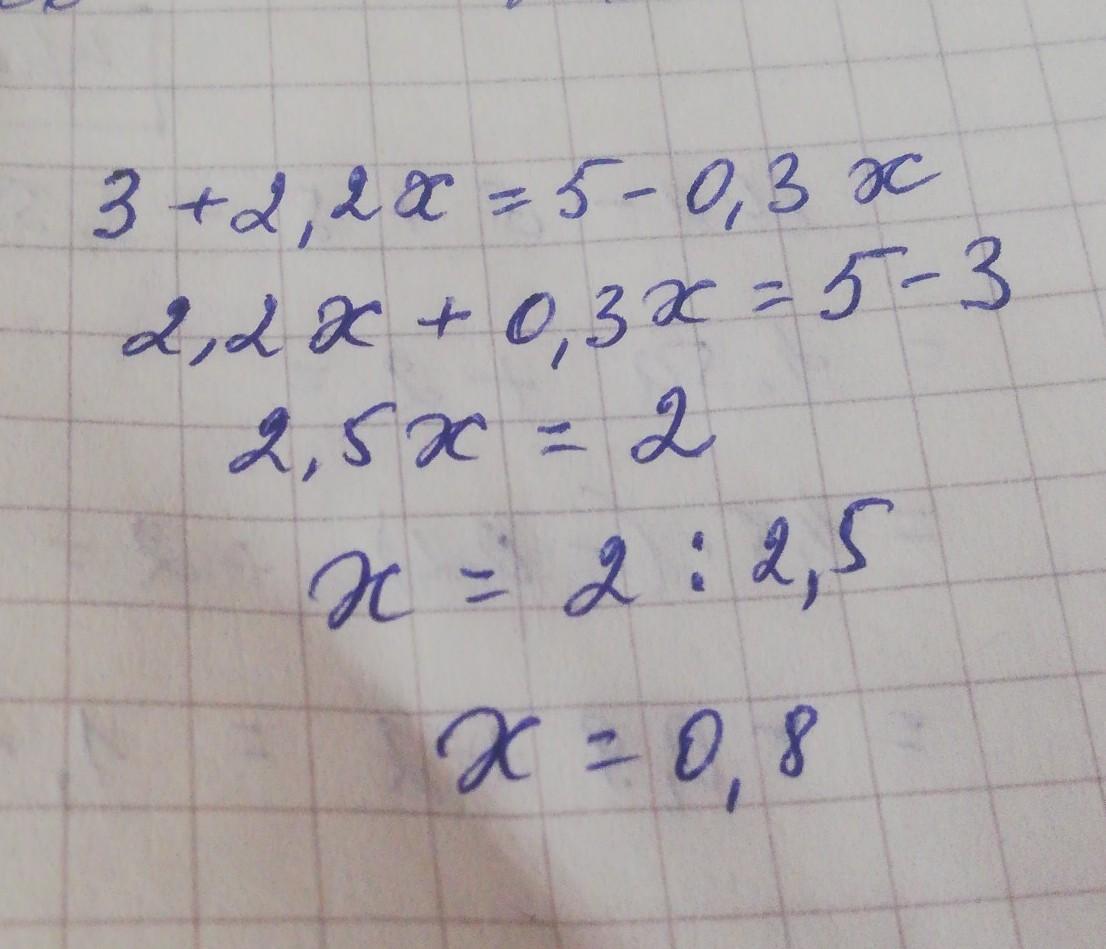 3 + 2,2x = 5 - 0,3x
2,2x + 0,3x = 5 - 3
2,5x = 2
x = 2 : 2,5
x = 0,8